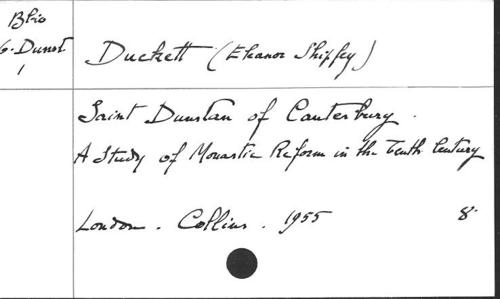 Bbio
6. Dunst
1
Duckett (Eleanor Shipley)
Saint Dunstan of Canterbury.
A Study of Monastic Reform in the Tenth Century
London. Collins. 1955 8°